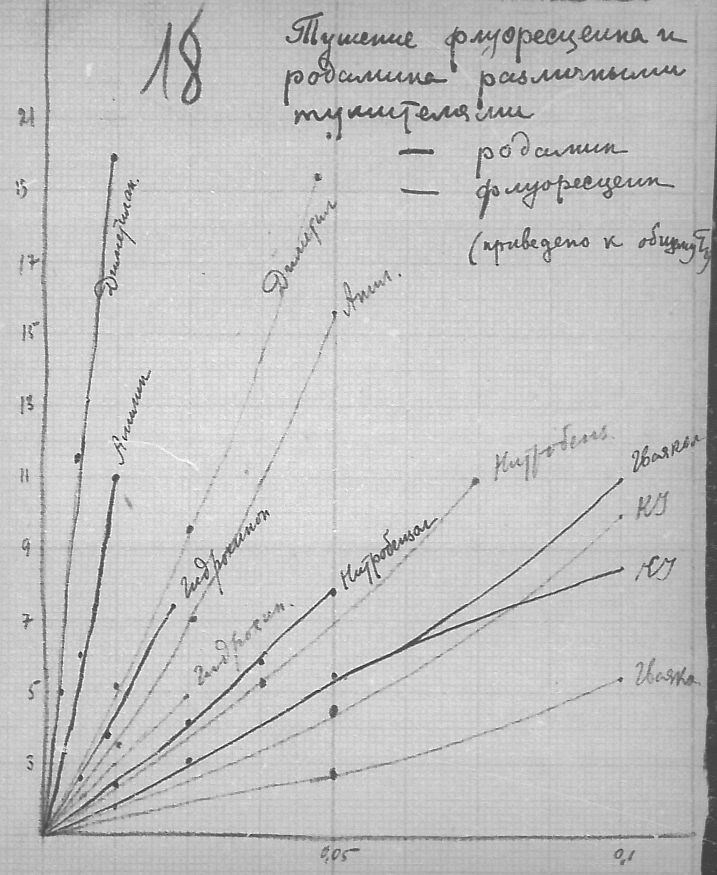 18
Тушение флуоресцеина и
родамина различными
тушителями
родамин
флуоресцеин
(приведено к общему
21
19
17
15
13
11
9
7
5
3
0,05
0,1
Диметилан.
Анилин
Гидрохинон
Гидрохин.
Димефил
Анил.
Нитробензол
Нитробенз.
Гваякол
KJ
KJ
Гваяко